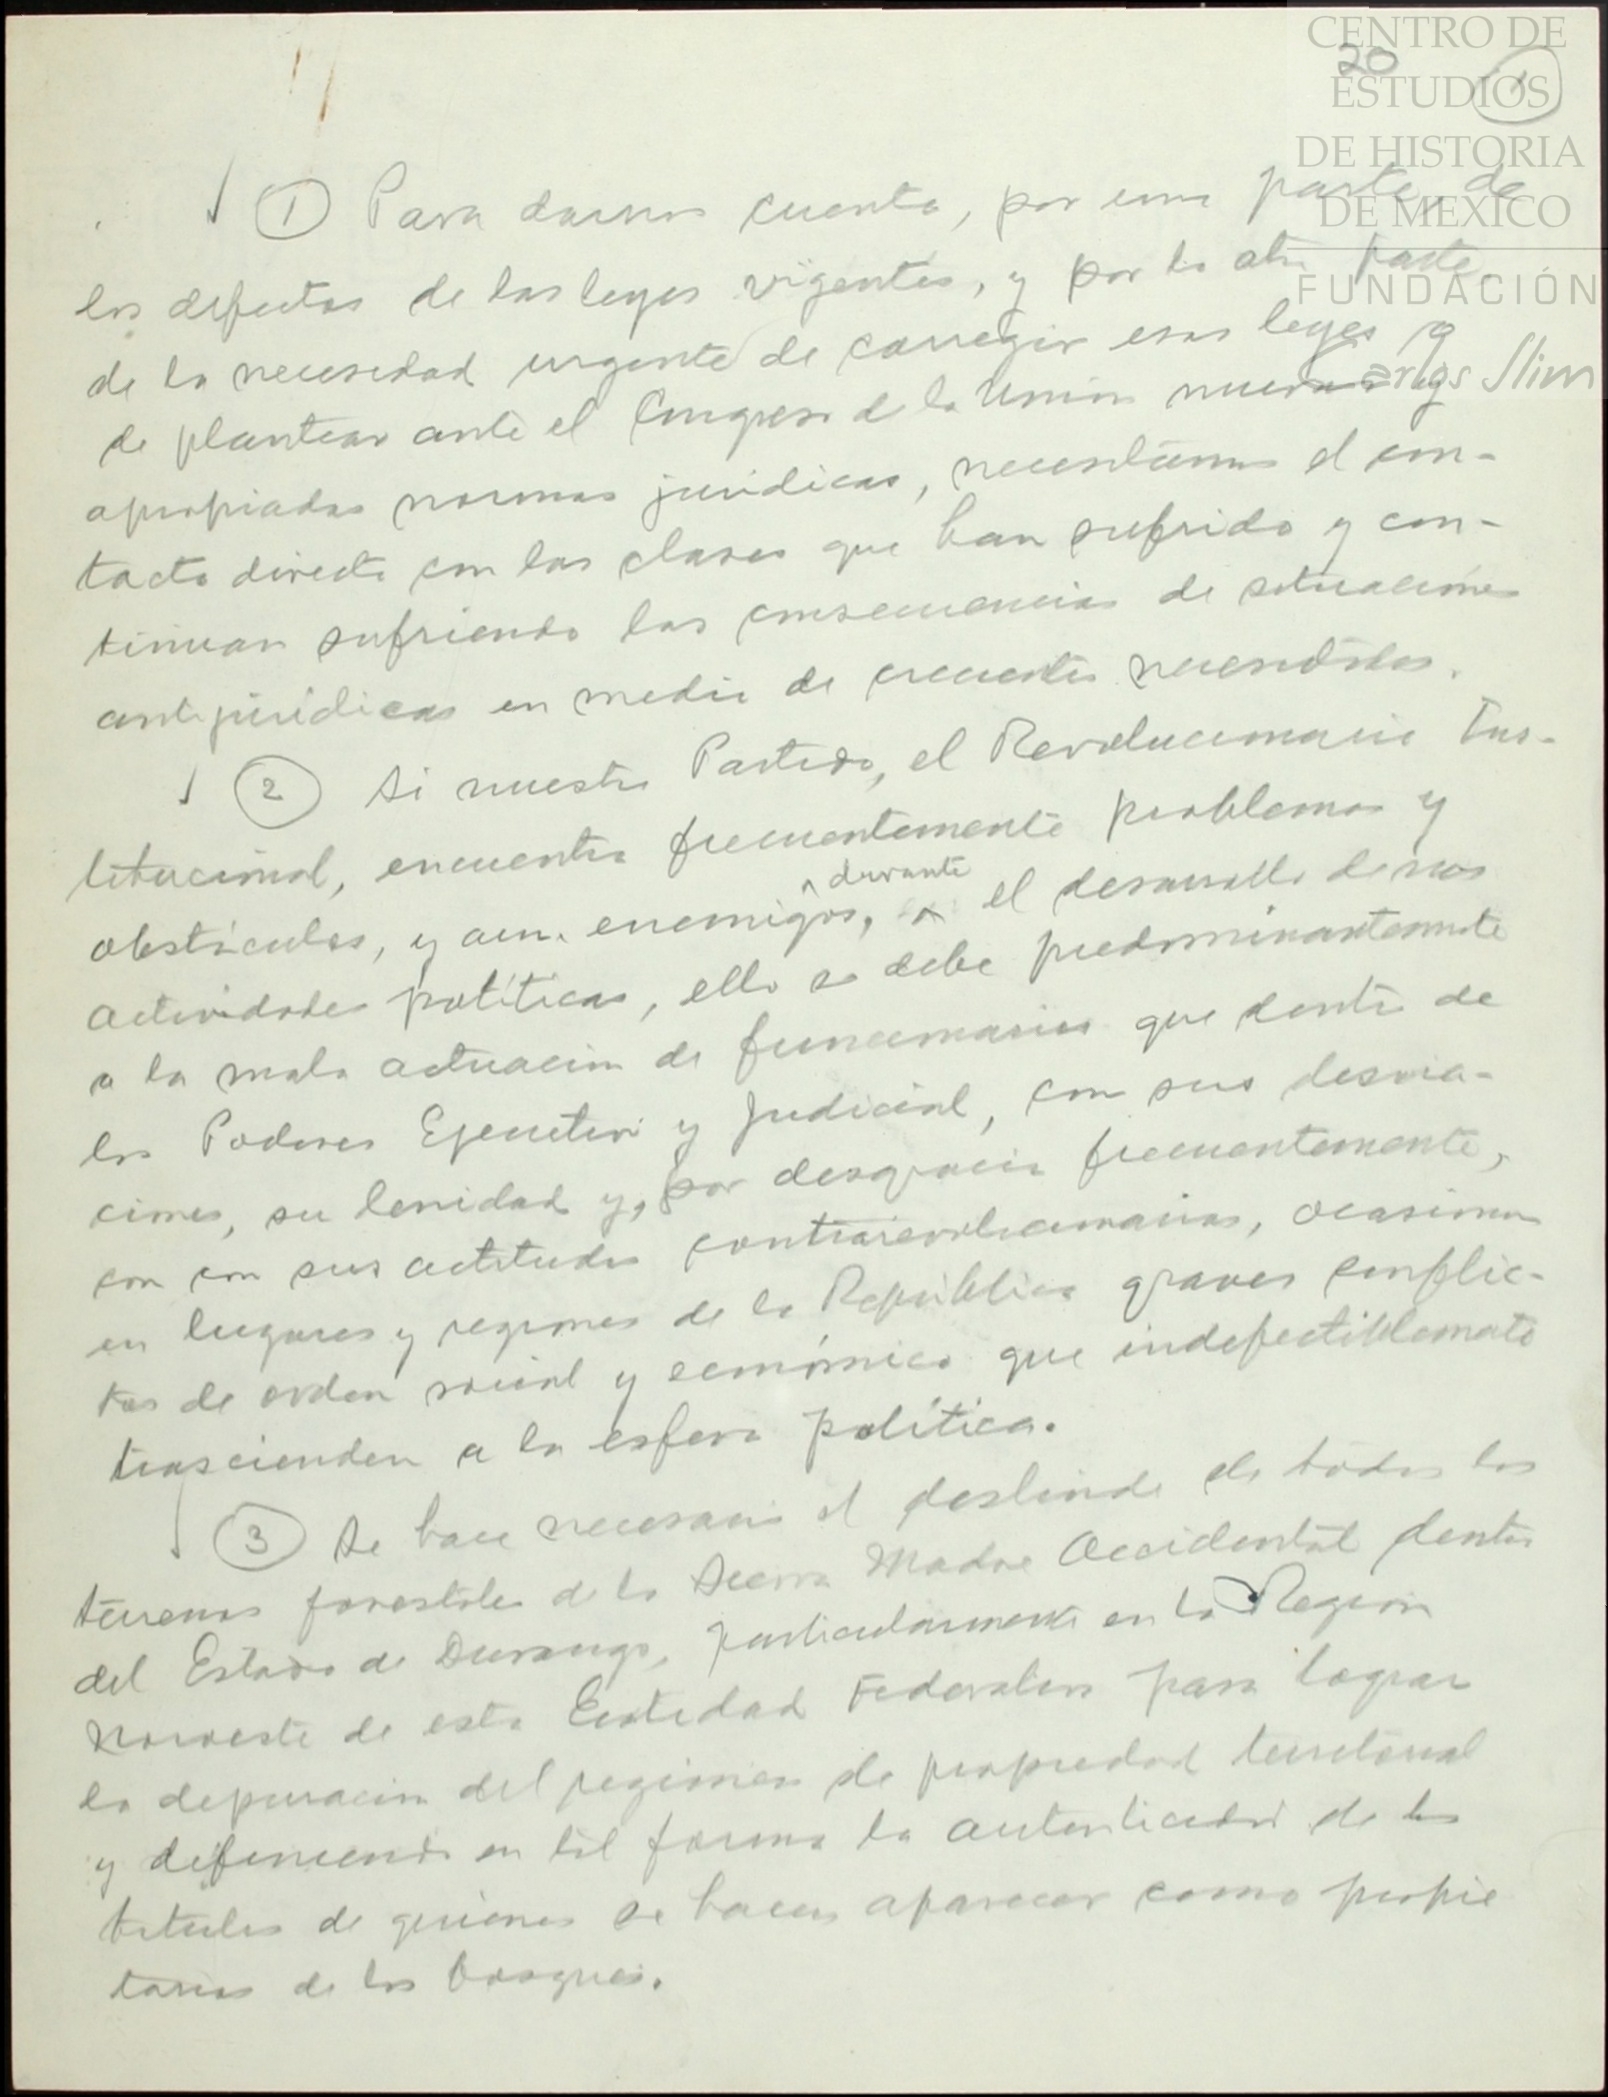 CENTRO DE
ESTUDIOS
DE HISTORIA
DE MÉXICO
FUNDACIÓN
Carlos Slim
20
1
① Para darnos cuenta, por una parte, de
los defectos de las leyes vigentes, y por la otra parte
de la necesidad urgente de corregir esas leyes y
de plantear ante el Congreso de la Unión nuevas y
apropiadas normas jurídicas, necesitamos el con-
tacto directo con las clases que han sufrido y con-
tinuan sufriendo las consecuencias de situaciones
antijurídicas en medio de crecientes necesidades.
② Si nuestro Partido, el Revolucionario Ins-
titucional, encuentra frecuentemente problemas y
obstáculos, y aun enemigos, durante el desarrollo de sus
actividades políticas, ello se debe predominantemente
a la mala actuación de funcionarios que dentro de
los Poderes Ejecutivo y Judicial, con sus desvia-
ciones, su lenidad y, por desgracia frecuentemente,
con sus actitudes contrarevolucionarias, ocasionan
en lugares y regiones de la República graves conflic-
tos de orden social y económico que indefectiblemente
trascienden a la esfera política.
③ Se hace necesario el deslinde de todos los
terrenos forestales de la Sierra Madre Occidental dentro
del Estado de Durango, particularmente en la Región
Noroeste de esta Entidad Federativa para lograr
la depuración del régimen de propiedad territorial
y definiendo en tal forma la autenticidad de los
titulos de quienes se hacen aparecer como propie
tarios de los bosques.